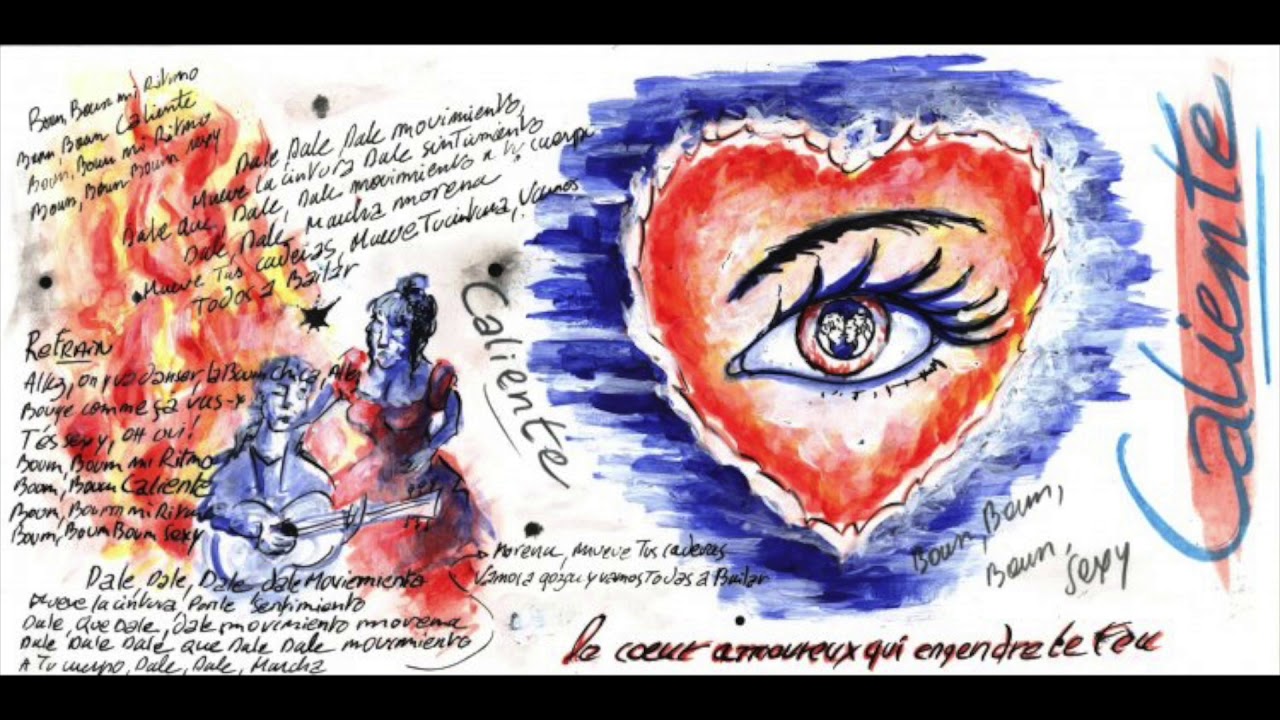 Boum, Boum mi Ritmo
Boum, Boum Caliente
Boum, Boum mi Ritmo
Boum, Boum Boum sexy
Dale Dale Dale movimiento,
Mueve la cintura Dale sintimiento
Dale que, Dale, Dale movimiento a tu cuerpo
Dale, Dale, Marcha morena
Mueve Tus caderas, Mueve Tu cintura, Vamos
Todos a Bailar
Refrain
on y va danser, la Boum chica,
Bouge comme ça vas-y
T'es sexy, oh oui!
Boum, Boum mi Ritmo
Boom, Boum Caliente
Boum, Boum mi Ritmo
Boum, Boum Boum sexy
Dale, Dale, Dale dale Moviemiento
Mueve la cintura, Ponle Sentimiento
Dale, que Dale, dale movimiento morena
Dale Dale Dale que Dale Dale movimiento
A Tu cuerpo, Dale, Dale, Marcha
Morena, Mueve Tus caderas
Vamos a gozar y vamos Todos a Bailar
Caliente
Boum, Boum,
Boum, Sexy
Caliente
le coeur amoureux qui engendre le Feu